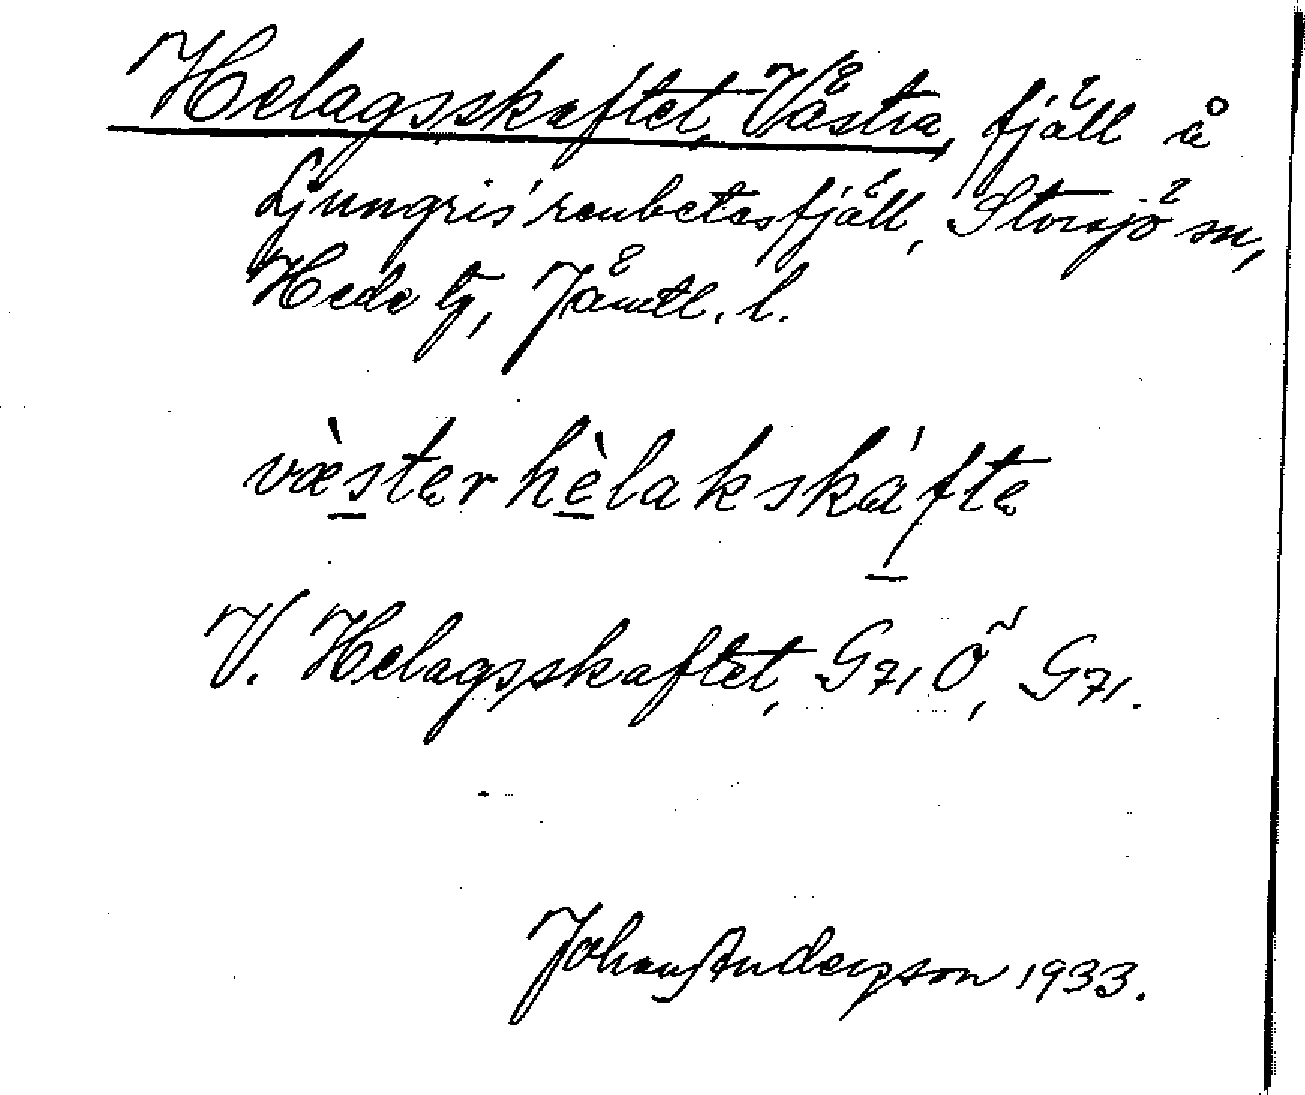 Helagsskaftet, Västra, fjäll å
Ljungris' renbetesfjäll, Storsjö sn,
Hede tg, Jämtl. l.
væ̀ster hèlakskáfte
V. Helagsskaftet, G71 Ö, G71.
Johan Anderson 1933.